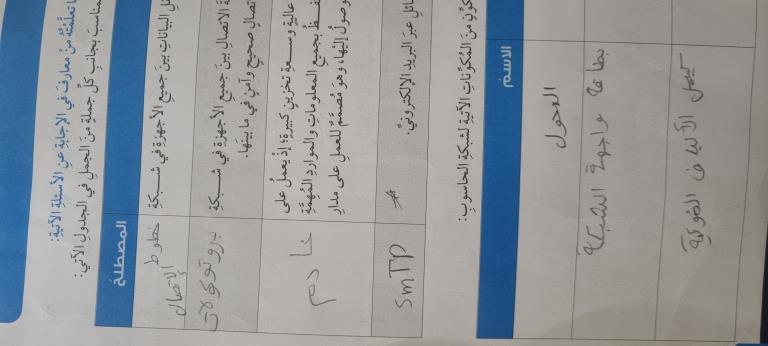 تعلّمتُهُ منْ معارفَ في الإجابةِ عنِ الأسئلةِ الآتيةِ:
المناسبَ بجانبِ كلِّ جملةٍ منَ الجملِ في الجدولِ الآتي:
المصطلح
البياناتِ بينَ جميعِ الأجهزةِ في شبكةِ
خطوط الإتصال
الاتصالِ بينَ جميعِ الأجهزةِ في شبكةِ
صحيحٍ وآمنٍ في ما بينَها.
بروتوكولات
عاليةٍ وسعةِ تخزينٍ كبيرةٍ؛ إذْ يعملُ على
بجميعِ المعلوماتِ والمواردِ المُهمَّةِ
إليْها، وهوَ مُصمَّمٌ للعملِ على مدارِ
خادم
عبرَ البريدِ الإلكترونيِّ.
SMTP
منَ المُكوِّناتِ الآتيةِ لشبكةِ الحاسوبِ:
الاسم
المحول
بطاعة واجهة الشبكة
كيبل الألياف الضوئية